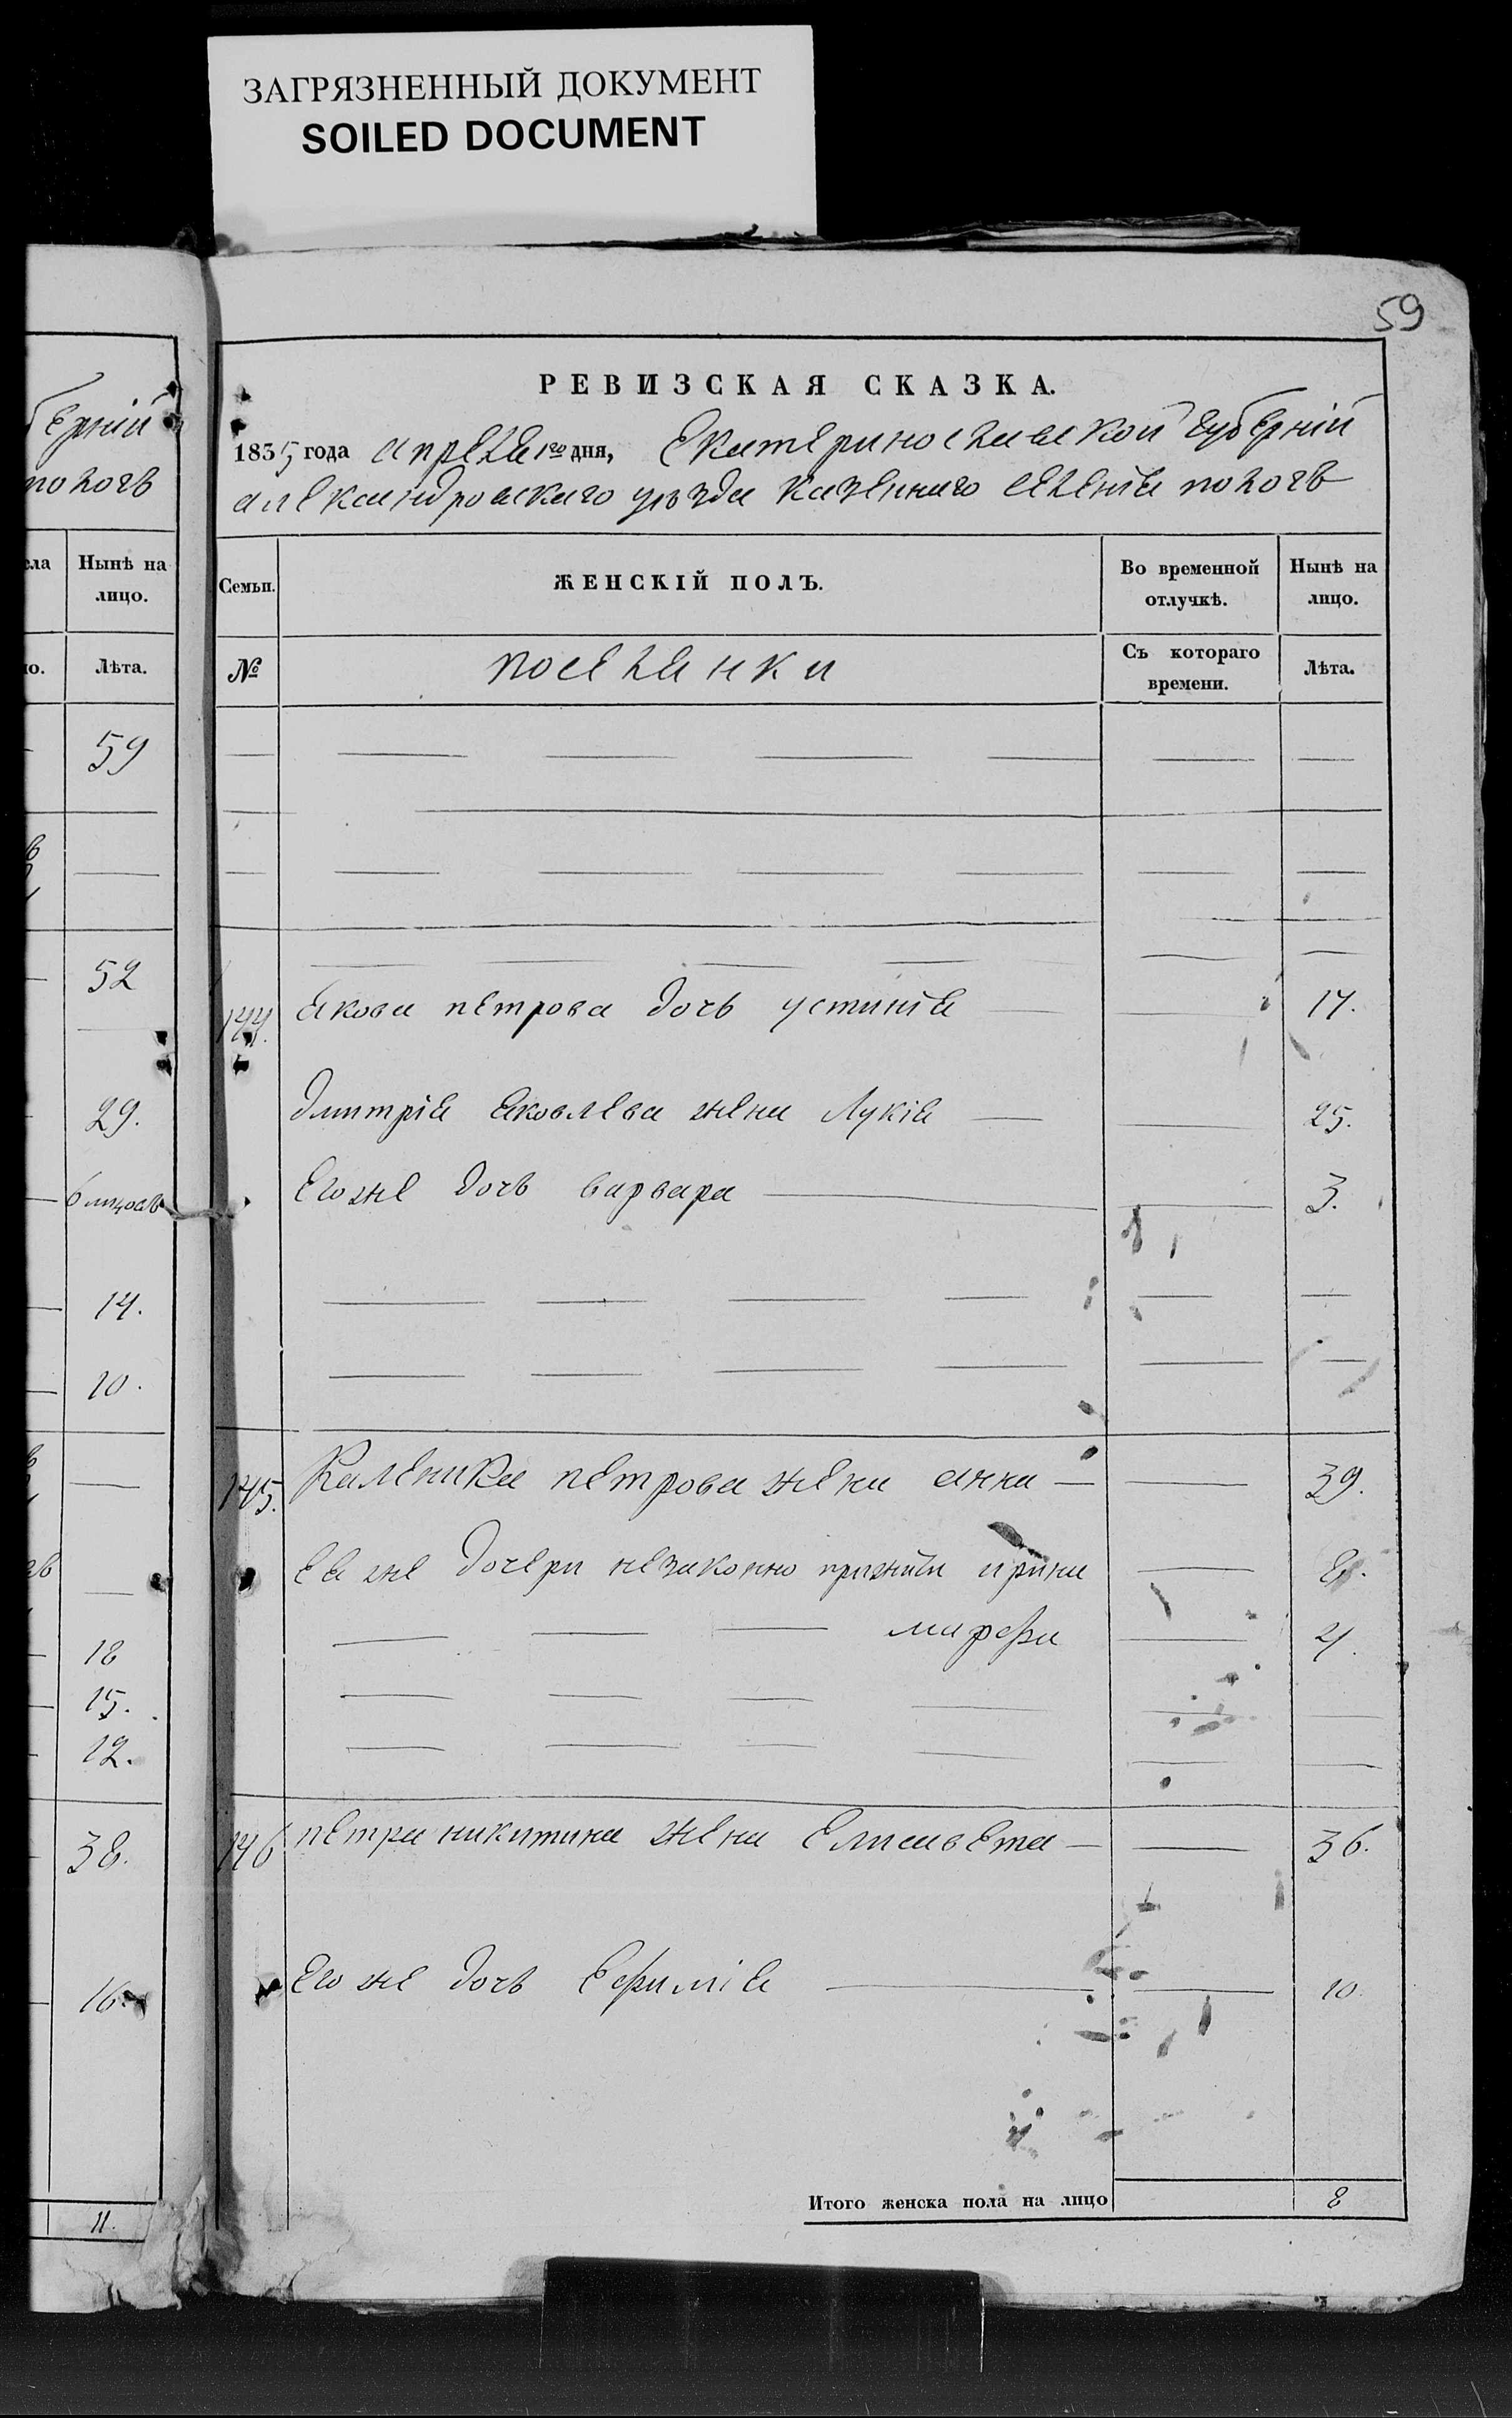 ЗАГРЯЗНЕННЫЙ ДОКУМЕНТ
SOILED DOCUMENT
59
РЕВИЗСКАЯ СКАЗКА.
1835 года апреля 1го дня, Екатеринославской губерніи
александровскаго уѣзда казеннаго селенія пологъ
Семьи.
ЖЕНСКІЙ ПОЛЪ.
Во временной отлучкѣ.
Нынѣ на лицо.
№
поселянки
Съ котораго времени.
Лѣта.
144. якова петрова дочь устинія 17.
дмитрія яковлева жена Лукія 25.
Его же дочь варвара 3.
145. Каленика петрова жена анна 39.
Ея же дочери незаконно прижиты ирина 8.
марфа 4.
146 петра никитина жена Елисавета 36.
Его же дочь Ефимія 10.
Итого женска пола на лицо 8
берніи
пологъ
ела
Нынѣ на лицо.
но.
Лѣта.
59
52
29.
6 мцовъ
14.
10.
18
15.
12.
38.
16.
11.